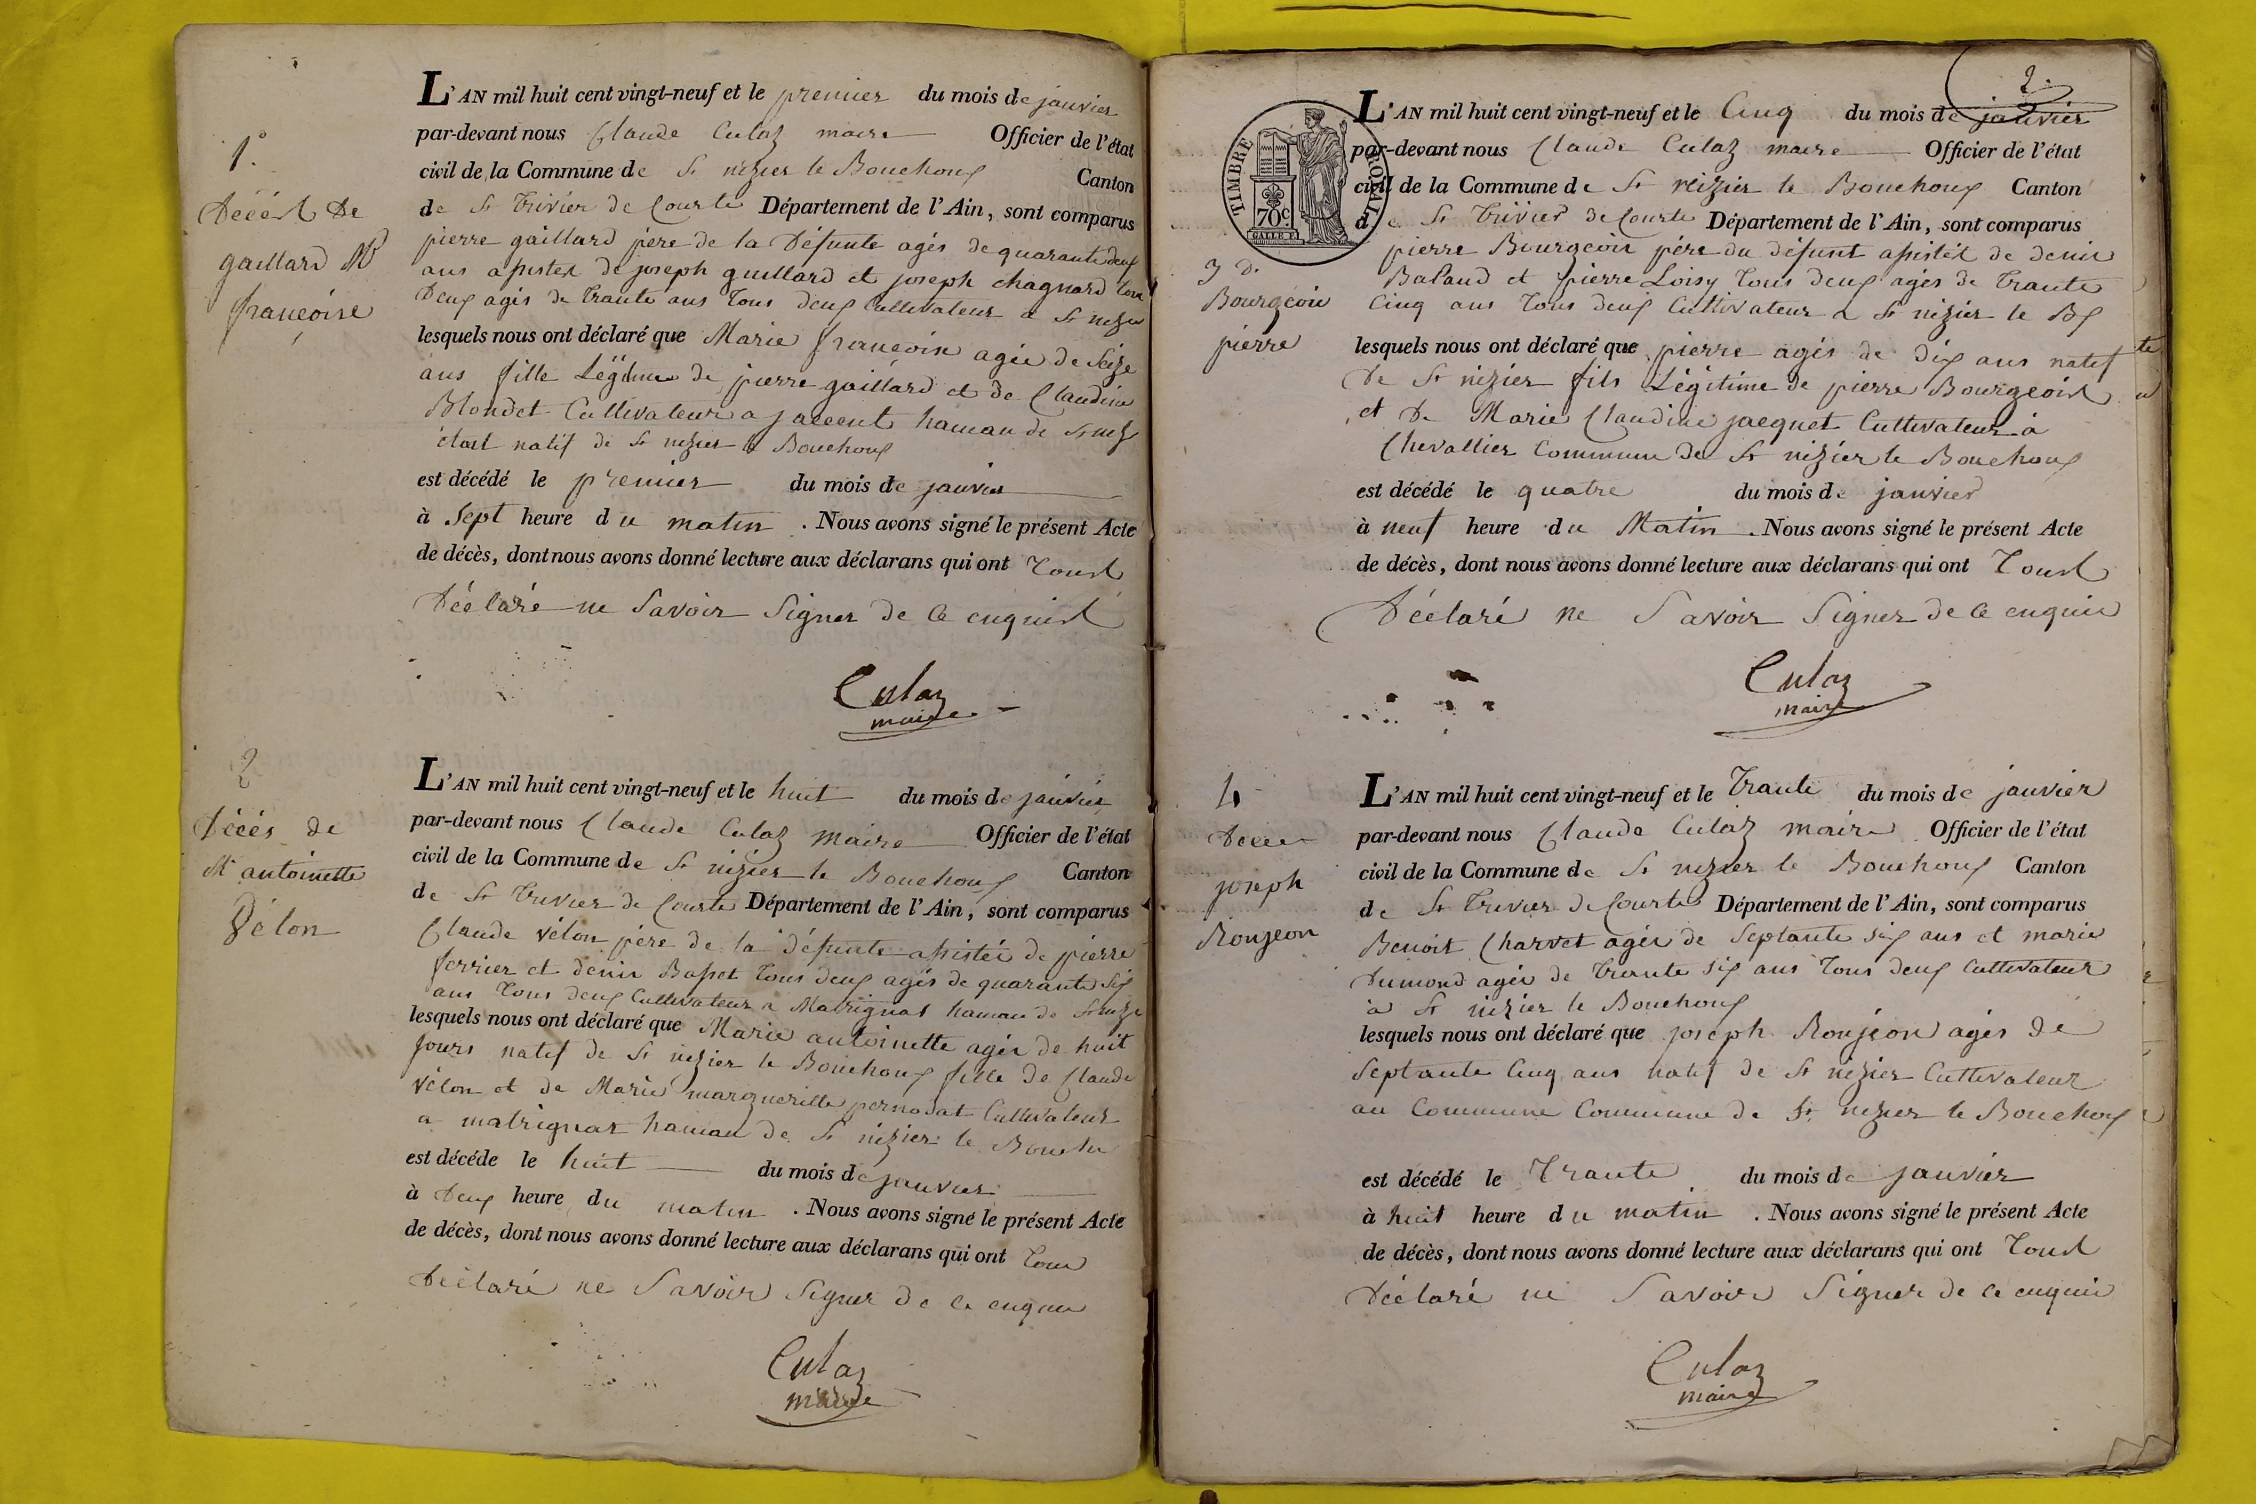 1°
Décést De
gaillard Me
françoise
L'AN mil huit cent vingt-neuf et le premier du mois de janvier
par-devant nous Claude Culaz maire Officier de l'état
civil de la Commune de St nizier le Bouchoux Canton
de St Trivier de Courte Département de l'Ain, sont comparus
pierre gaillard père de la Défunte agés de quarante deux
ans assistés de joseph guillard et joseph chagnard tous
Deux agés de trante ans tous deux Cultivateur a St nizier
lesquels nous ont déclaré que Marie françoise agée de Seize
ans fille Légitime de pierre gaillard et de Claudine
Blondet Cultivateur a jaccent hamau de St niz
étant natif de St nizier le Bouchoux
est décédé le premier du mois de janvier
à Sept heure du matin . Nous avons signé le présent Acte
de décès, dont nous avons donné lecture aux déclarans qui ont Toust
Déclaré ne Savoir Signer de Ce enquist
Culaz
maire
2
Décés de
Me antoinette
Vélon
L'AN mil huit cent vingt-neuf et le huit du mois de janvier
par-devant nous Claude Culaz maire Officier de l'état
civil de la Commune de St nizier le Bouchoux Canton
de St Trivier de Courte Département de l'Ain, sont comparus
Claude vélon père de la défunte assistée de pierre
ferrier et denis Basset tous deux agés de quarante six
ans tous deux Cultivateur a Matrignat hamau de St nizier
lesquels nous ont déclaré que Marie antoinette agée de huit
jours natif de St nizier le Bouchoux fille de Claude
vélon et de Marie margueritte pernodat Cultivateur
a matrignat hamau de St nizier le Bouchu
est décéde le huit du mois de janvier
à Deux heure du matin . Nous avons signé le présent Acte
de décès, dont nous avons donné lecture aux déclarans qui ont Tous
Déclaré ne Savoir Signer de Ce enquis
Culaz
maire
2.
TIMBRE ROYAL
70c
3 d.
Bourgeois
pierre
L'AN mil huit cent vingt-neuf et le Cinq du mois de janvier
par-devant nous Claude Culaz maire Officier de l'état
civil de la Commune de St nizier le Bouchoux Canton
de St Trivier de Courte Département de l'Ain, sont comparus
pierre Bourgeois père du défunt assistét de denis
Balaud et pierre Loisy tous deux agés de trante
Cinq ans tous deux Cultivateur a St nizier le Bx
lesquels nous ont déclaré que pierre agés de dix ans natif
De St nizier fils Légitime de pierre Bourgeoist
et De Marie Claudine jacquet Cultivateur à
Chevallier Commune De St nizier le Bouchoux
est décédé le quatre du mois de janvier
à neuf heure du Matin . Nous avons signé le présent Acte
de décès, dont nous avons donné lecture aux déclarans qui ont Toust
Déclaré ne Savoir Signer de Ce enquis
Culaz
maire
4
Décès
joseph
Ronjeon
L'AN mil huit cent vingt-neuf et le Trante du mois de janvier
par-devant nous Claude Culaz maire Officier de l'état
civil de la Commune de St nizier le Bouchoux Canton
de St Trivier de Courte Département de l'Ain, sont comparus
Benoit Charvet agés de Septante six ans et marie
Dumond agée de trante six ans tous deux Cultivateur
a St nizier le Bouchoux
lesquels nous ont déclaré que joseph Ronjeon agés de
Septante Cinq ans natif de St nizier Cultivateur
au Commune Commune de St nizier le Bouchoux
est décédé le Trante du mois de janvier
à huit heure du matin . Nous avons signé le présent Acte
de décès, dont nous avons donné lecture aux déclarans qui ont Toust
Déclaré ne Savoir Signer de Ce enquis
Culaz
maire